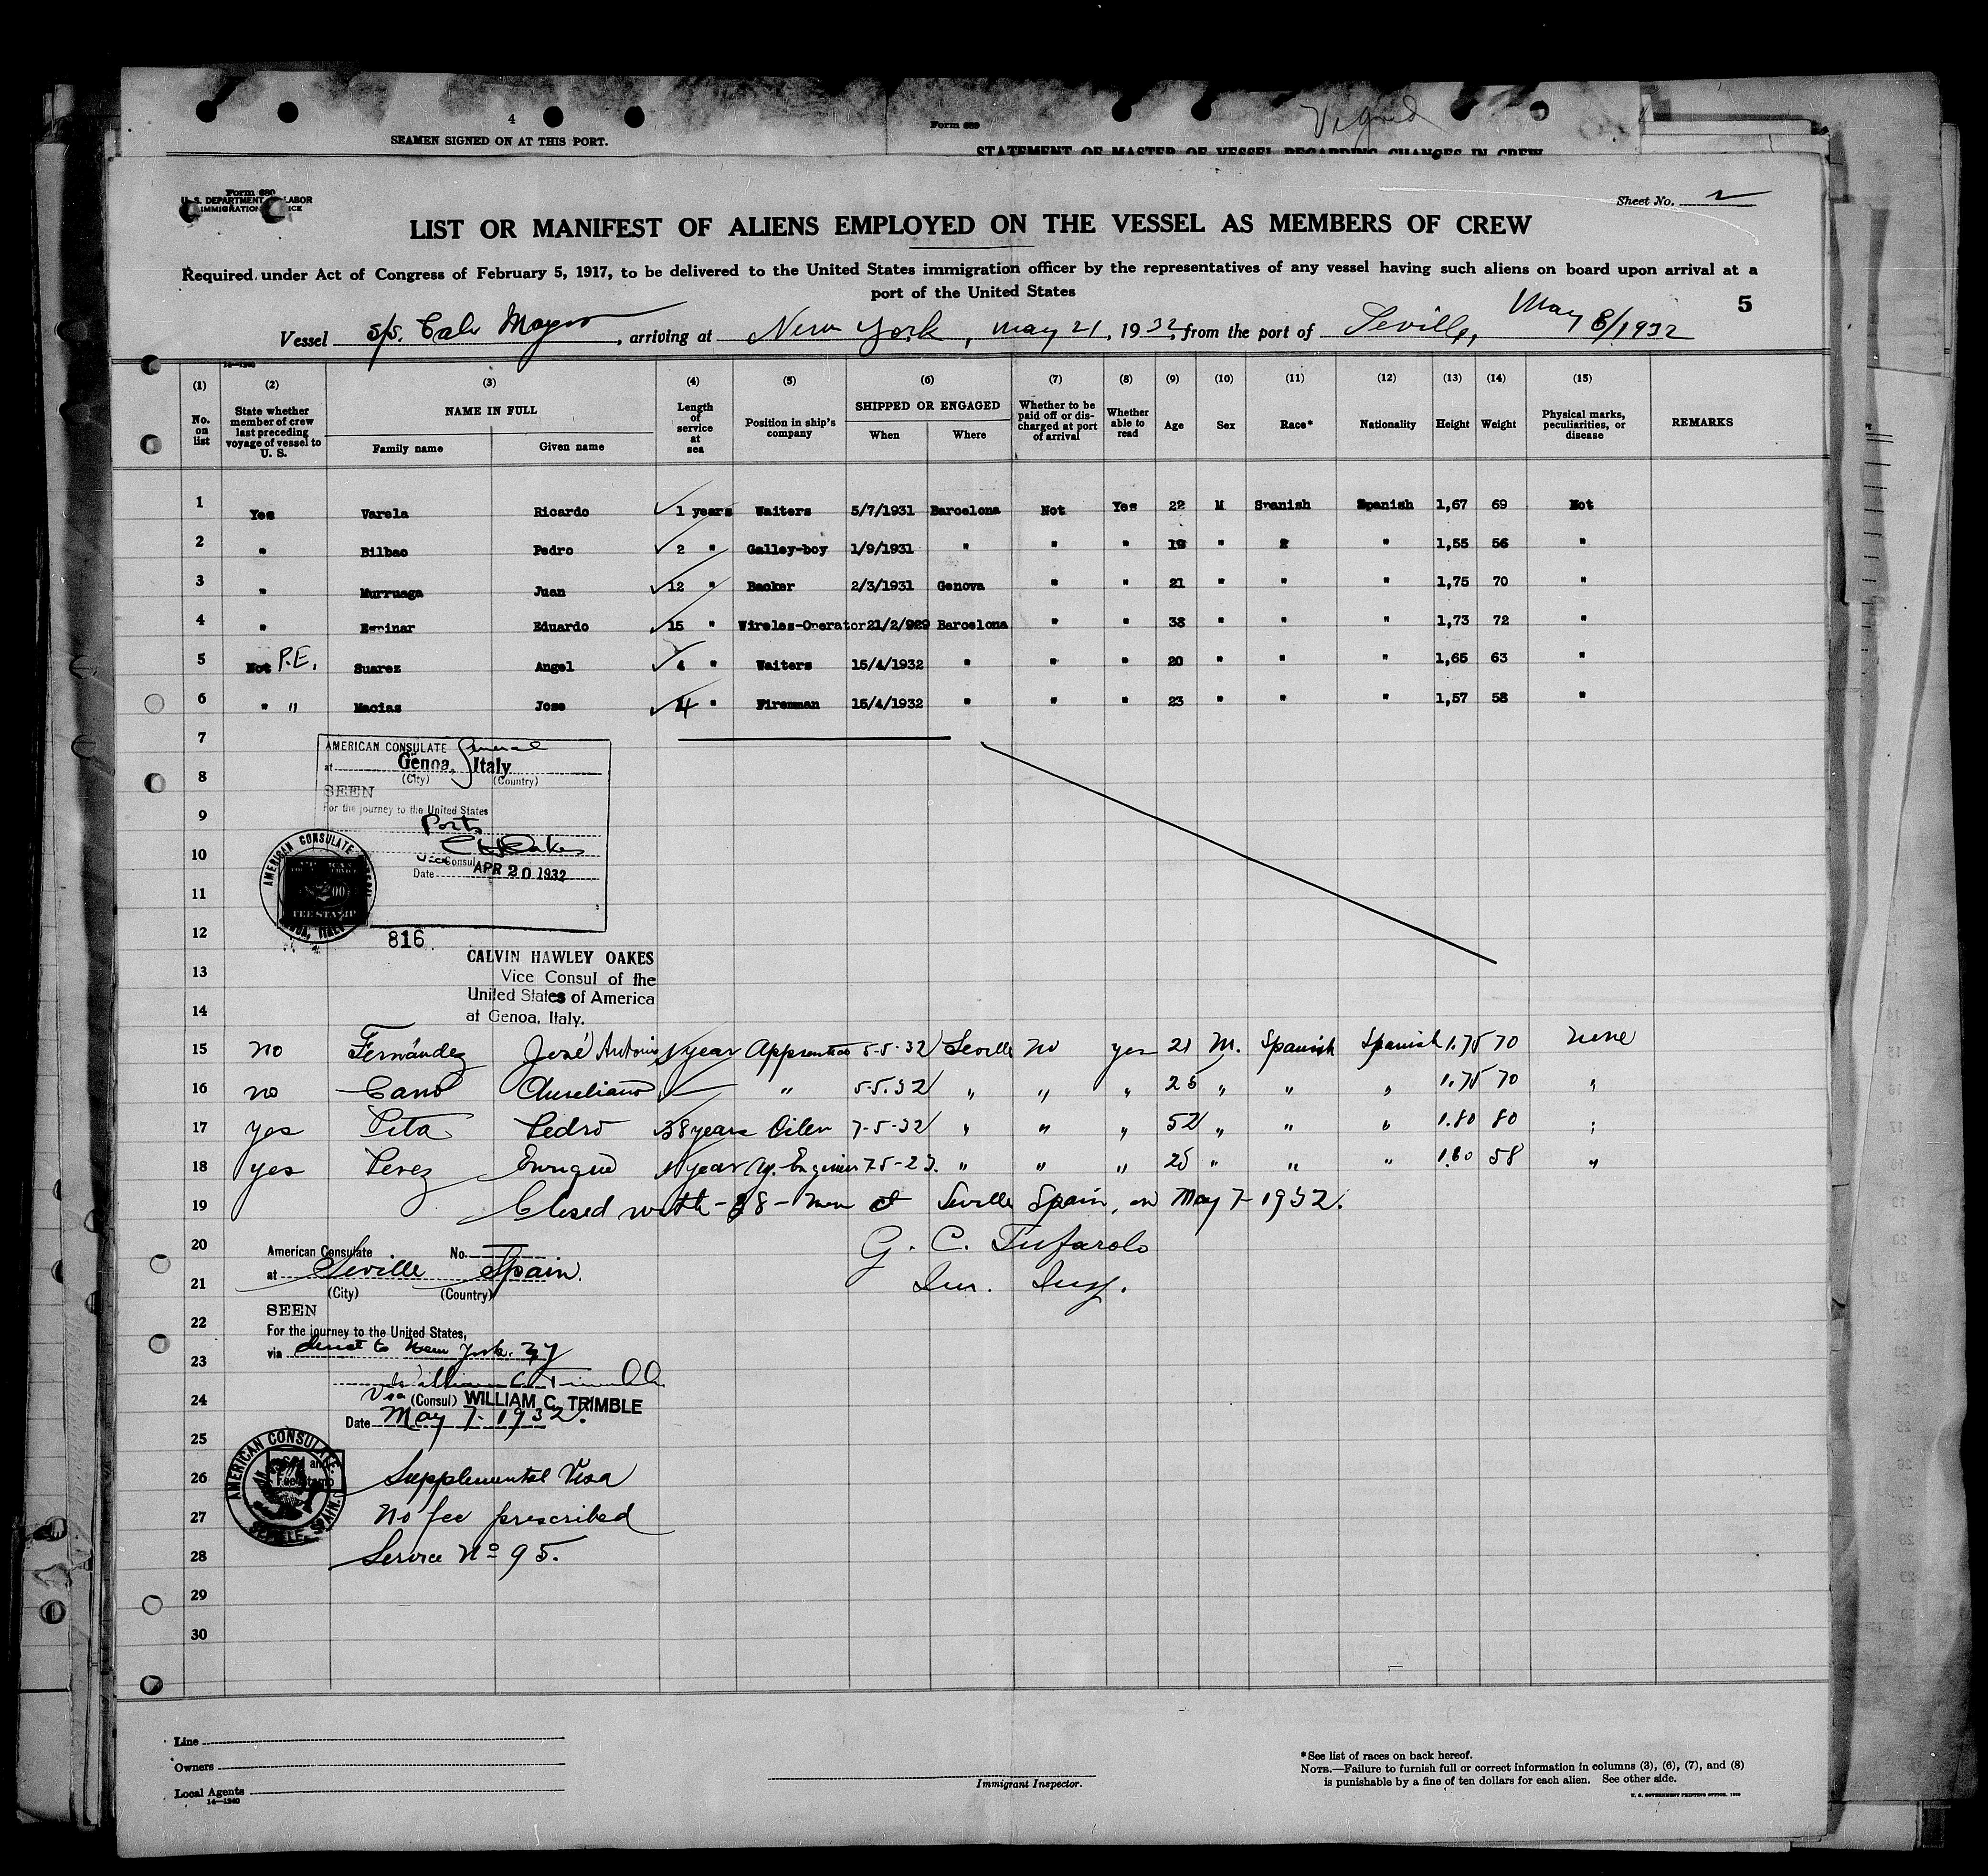 4
SEAMEN SIGNED ON AT THIS PORT.
Form 689
STATEMENT OF MASTER OF VESSEL REGARDING CHANGES IN CREW
Form 680
U. S. DEPARTMENT LABOR
IMMIGRATION
Sheet No. 2
LIST OR MANIFEST OF ALIENS EMPLOYED ON THE VESSEL AS MEMBERS OF CREW
Required under Act of Congress of February 5, 1917, to be delivered to the United States immigration officer by the representatives of any vessel having such aliens on board upon arrival at a
port of the United States
5
Vessel s/s. Cabo Mayor, arriving at New York, May 21, 1932, from the port of Seville, May 8/1932
14—1240
(1) (2) (3) (4) (5) (6) (7) (8) (9) (10) (11) (12) (13) (14) (15)
No. on list
State whether member of crew last preceding voyage of vessel to U. S.
NAME IN FULL
Family name
Given name
Length of service at sea
Position in ship's company
SHIPPED OR ENGAGED
When
Where
Whether to be paid off or discharged at port of arrival
Whether able to read
Age
Sex
Race*
Nationality
Height
Weight
Physical marks, peculiarities, or disease
REMARKS
1 Yes Varela Ricardo 1 years Waiters 5/7/1931 Barcelona Not Yes 22 M Spanish Spanish 1,67 69 Not
2 " Bilbao Pedro 2 " Galley-boy 1/9/1931 " " " 19 " " 1,55 56 "
3 " Murruaga Juan 12 " Backer 2/3/1931 Genova " " 21 " " " 1,75 70 "
4 " Espinar Eduardo 15 " Wireles-Operator 21/2/929 Barcelona " " 38 " " " 1,73 72 "
5 Not P.E. Suarez Angel 4 " Waiters 15/4/1932 " " " 20 " " " 1,65 63 "
6 " " Macias Jose 4 " Fireman 15/4/1932 " " " 23 " " " 1,57 58 "
7
8
9
10
11
12
13
14
AMERICAN CONSULATE General
at Genoa, Italy
(City) (Country)
SEEN
For the journey to the United States
Ports
C H Oakes
Vice Consul
Date APR 20 1932
AMERICAN CONSULATE
FEE STAMP
816
CALVIN HAWLEY OAKES
Vice Consul of the
United States of America
at Genoa, Italy.
15 no Fernández José Antonio 1 year Apprentice 5-5-32 Seville no yes 21 M. Spanish Spanish 1.75 70 none
16 no Cano Aureliano " 5-5-32 " " " 25 " " " 1.75 70 "
17 yes Pita Pedro 38 years Oiler 7-5-32 " " " 52 " " " 1.80 80 "
18 yes Perez Enrique 1 year Ag. Engineer 7-5-23. " " " 25 " " " 1.60 58 "
19 Closed with - 38 - men at Seville Spain, on May 7- 1932.
20
G. C. Tufarolo
American Consulate No.
at Seville Spain.
21
Im. Insp.
(City) (Country)
22
SEEN
For the journey to the United States,
23
via direct to New York. NY
William C. Trimble
24
Vice (Consul) WILLIAM C. TRIMBLE
Date May 7- 1932.
25
AMERICAN CONSULATE.
SEVILLE, SPAIN.
26 Supplemental Visa
27 No fee prescribed
28 Service No 95.
29
30
Line
Owners
Local Agents
14—1240
Immigrant Inspector.
*See list of races on back hereof.
NOTE.—Failure to furnish full or correct information in columns (3), (6), (7), and (8)
is punishable by a fine of ten dollars for each alien. See other side.
U. S. GOVERNMENT PRINTING OFFICE, 1929